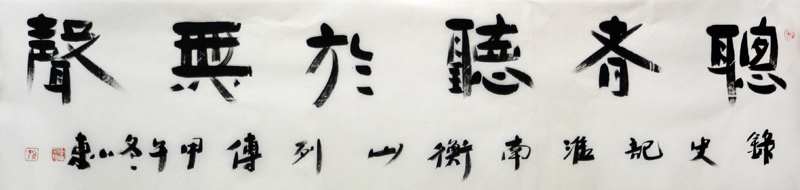 聰者聽於無聲
錄史記淮南衡山列傳甲午冬